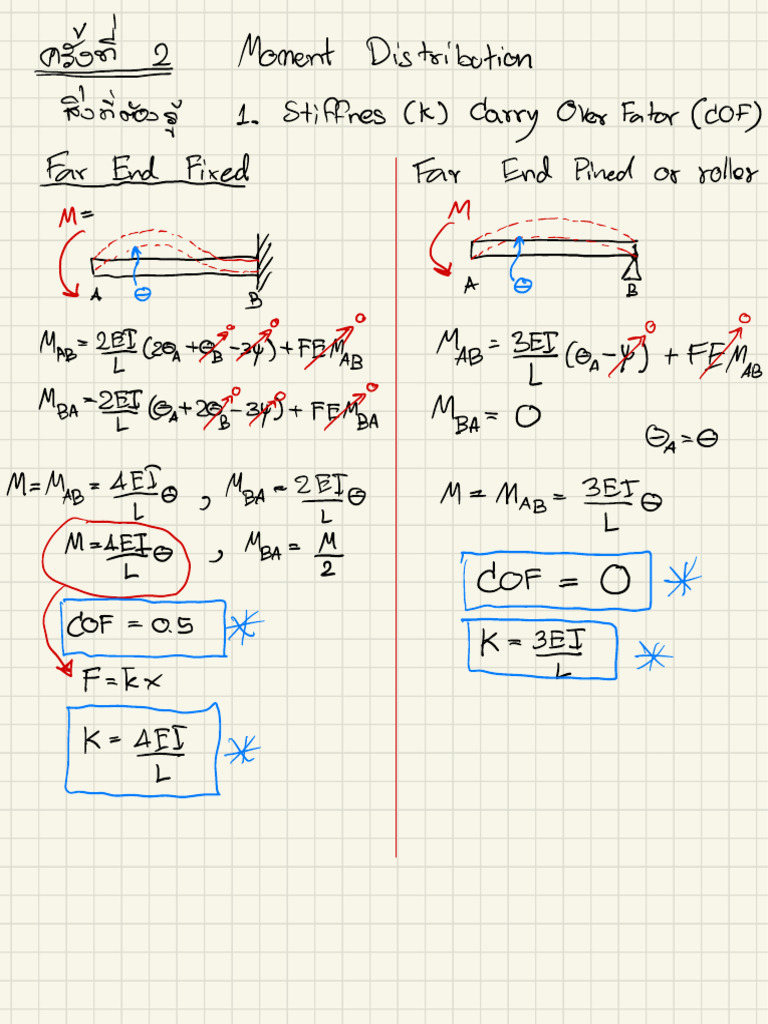 ครั้งที่ 2 Moment Distribution
สิ่งที่ต้องรู้ 1. Stiffnes (K) Carry Over Fator (COF)
Far End Fixed
M=
A θ B
M_AB = 2EI/L (2θ_A + θ_B - 3ψ) + FEM_AB
0 0 0
M_BA = 2EI/L (θ_A + 2θ_B - 3ψ) + FEM_BA
0 0 0
M = M_AB = 4EI/L θ , M_BA = 2EI/L θ
M = 4EI/L θ , M_BA = M/2
COF = 0.5 *
F = kx
K = 4EI/L *
Far End Pined or roller
M
A θ B
M_AB = 3EI/L (θ_A - ψ) + FEM_AB
0 0
M_BA = 0
θ_A = θ
M = M_AB = 3EI/L θ
COF = 0 *
K = 3EI/L *